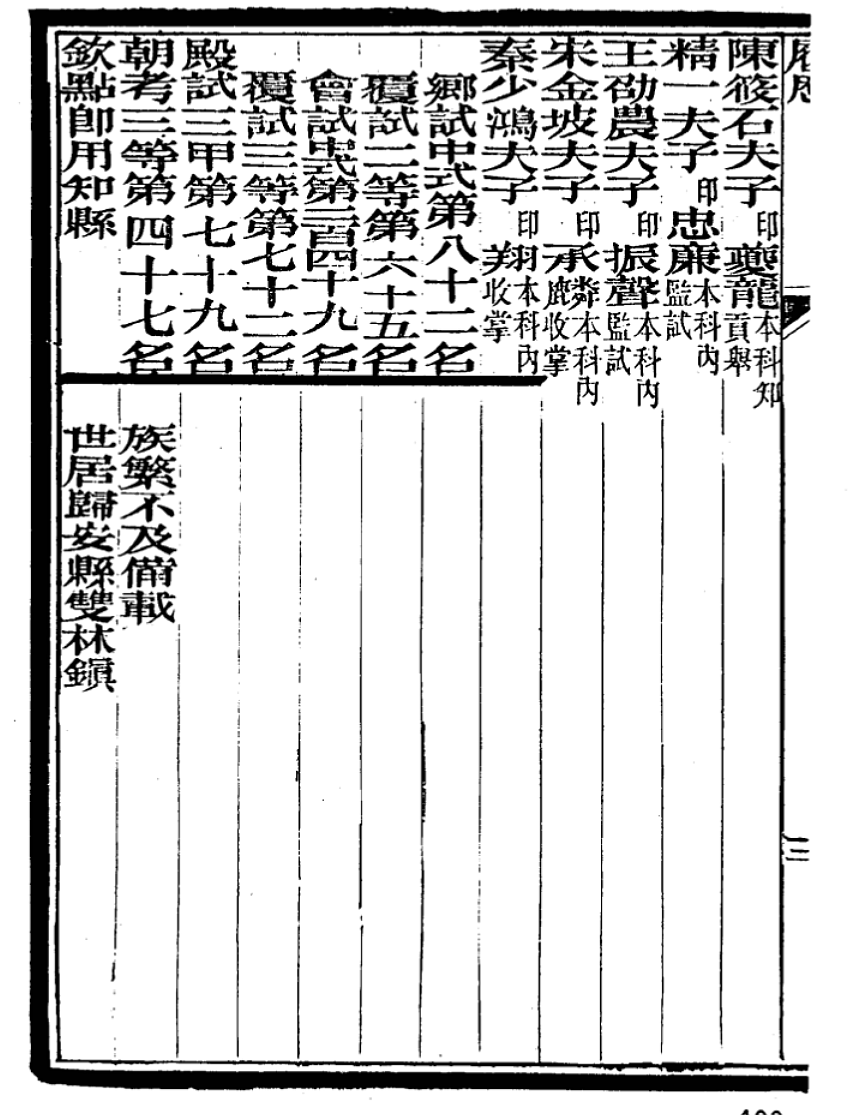 履歷
三
陳筱石夫子印夔龍本科知貢舉
精一夫子印忠廉本科內監試
王劭農夫子印振聲本科內監試
朱金坡夫子印承麟本科內收掌
秦少鴻夫子印翔本科內收掌
鄉試中式第八十二名
覆試二等第六十五名
會試中式第二百四十九名
覆試三等第七十二名
殿試三甲第七十九名
朝考三等第四十七名
欽點即用知縣
族繁不及備載
世居歸安縣雙林鎮